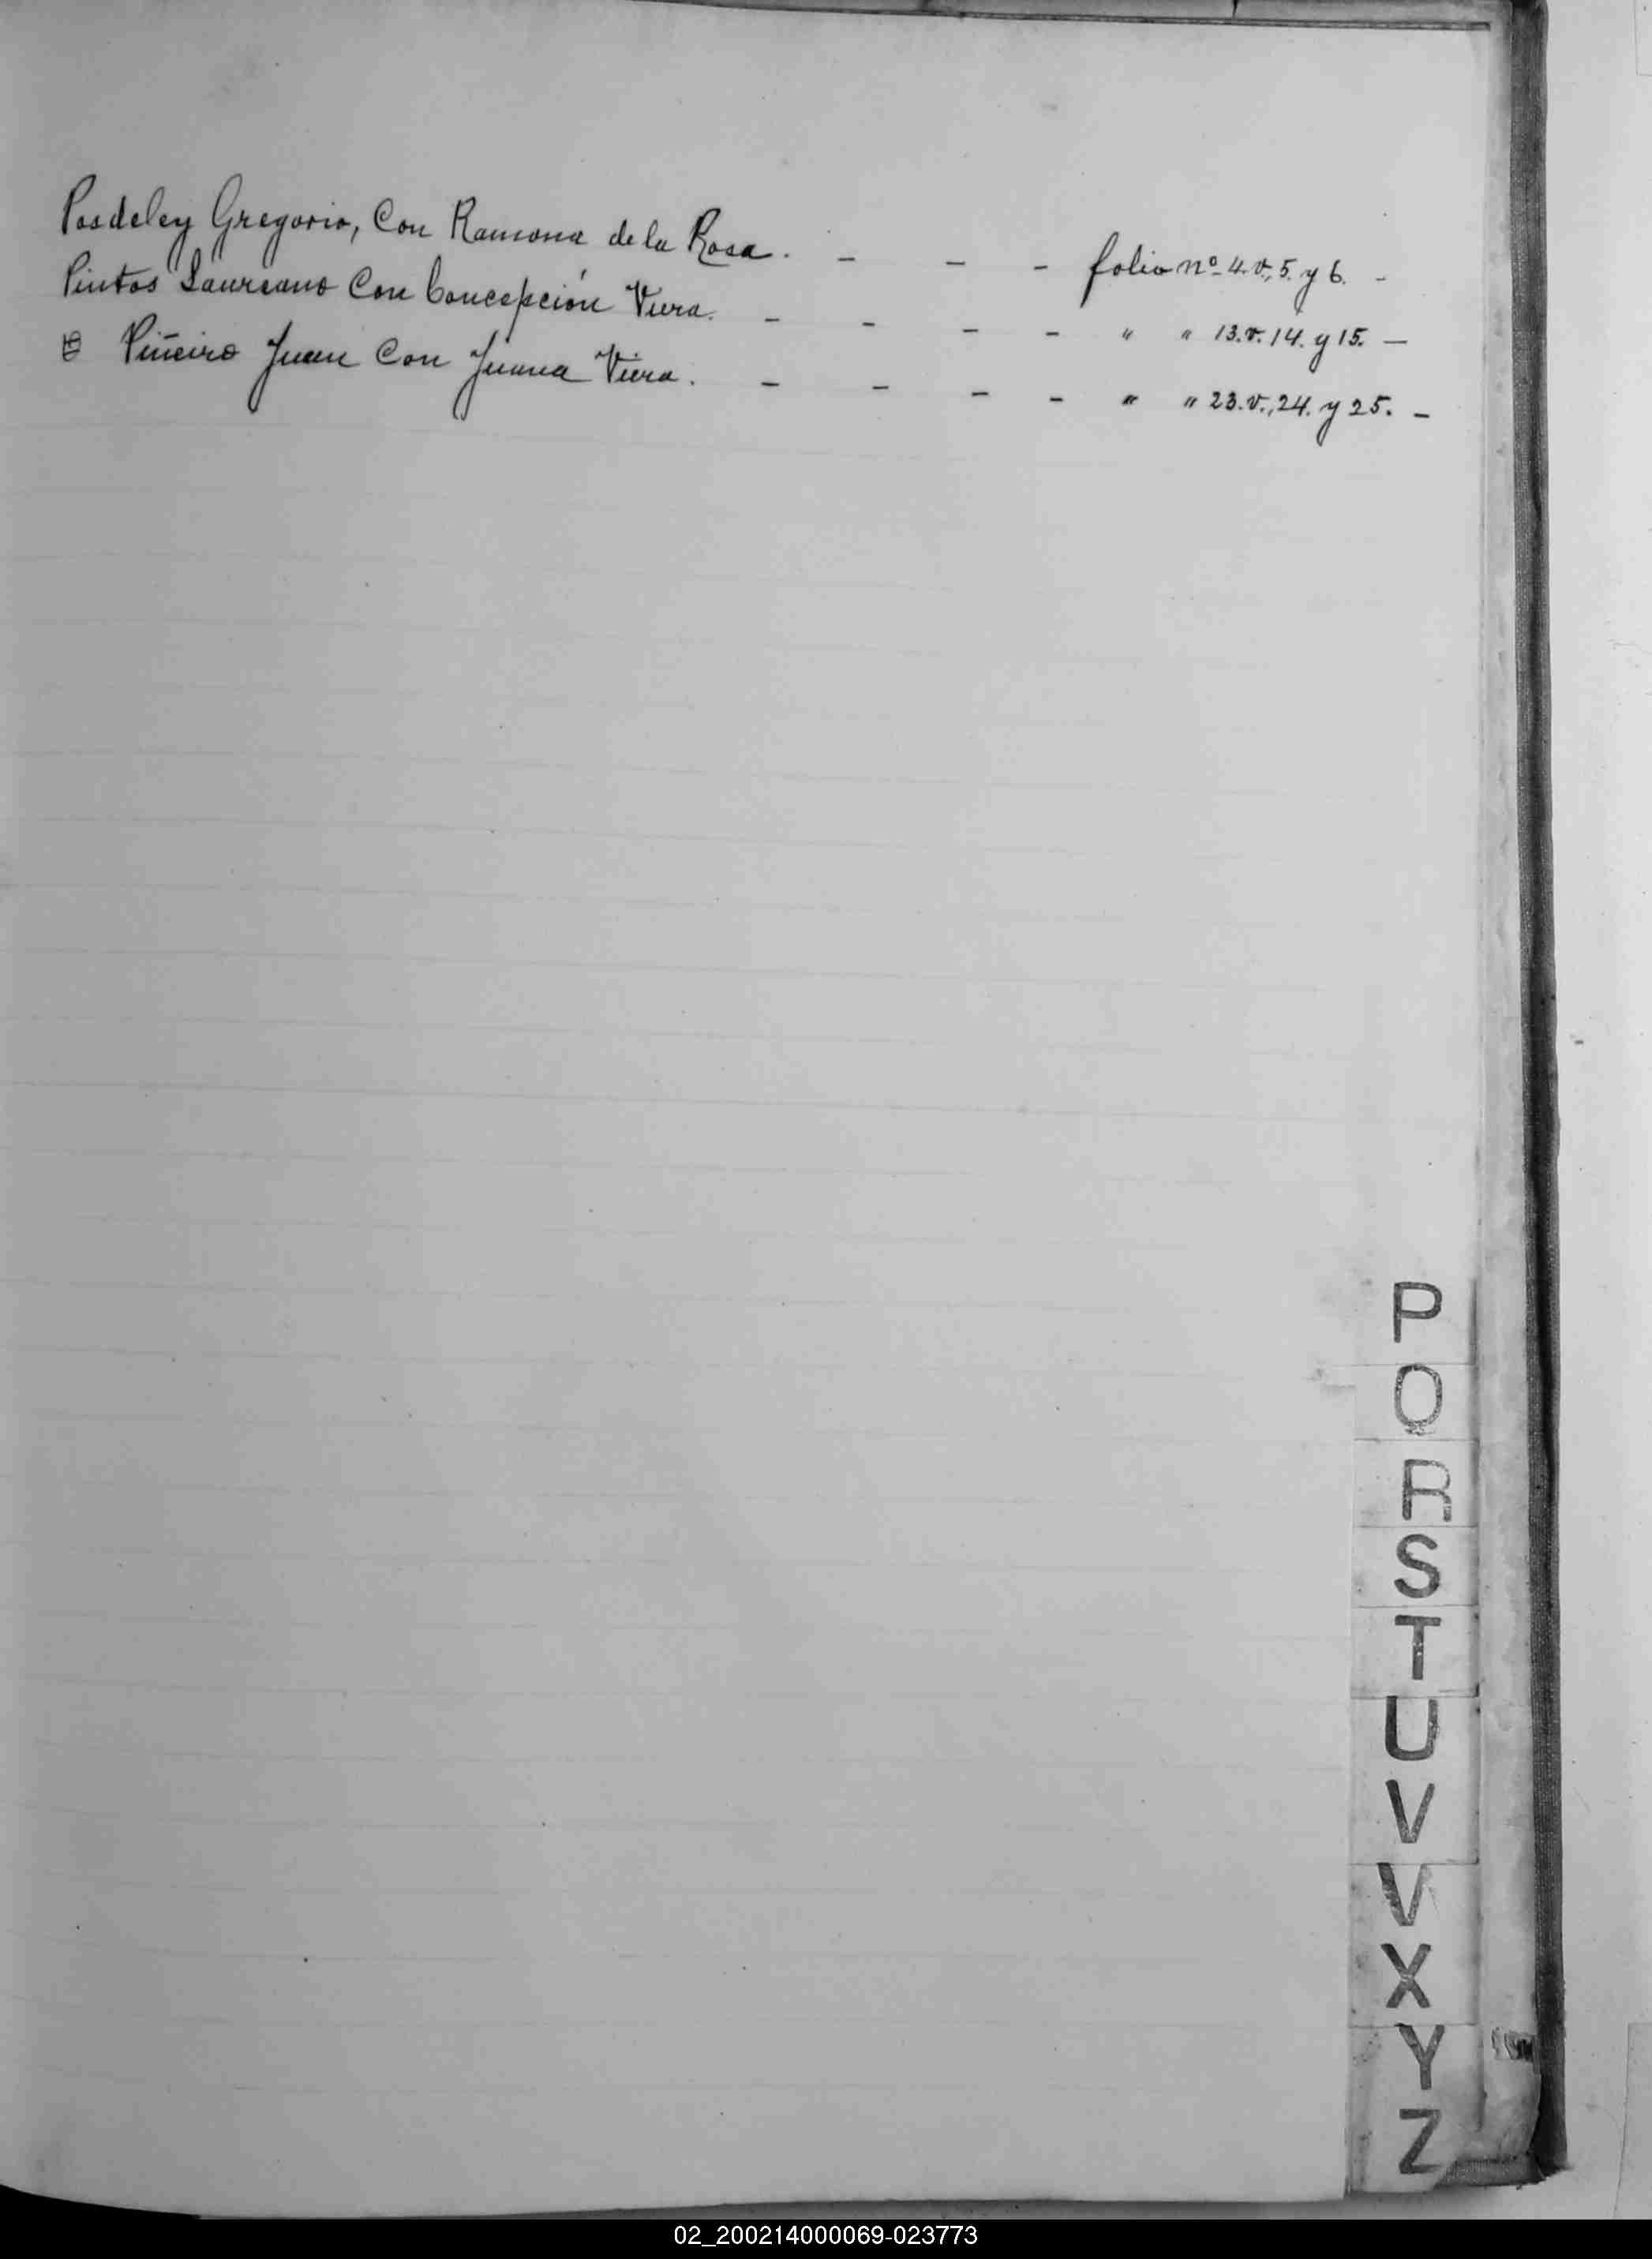 Posdeley Gregorio, Con Ramona de la Rosa. - - - folio nº 4.v., 5. y 6. -
Pintos Laureano Con Concepción Viera. - - - - " " 13.v. 14. y 15. —
Piñeiro Juan Con Juana Viera. - - - - " " 23.v., 24. y 25. -
P
Q
R
S
T
U
V
V
X
Y
Z
02_200214000069-023773